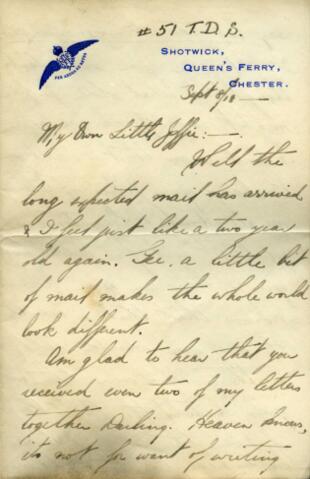 # 51 T.D.S.
SHOTWICK,
QUEEN'S FERRY,
CHESTER.
Sept 8/18 —
My Own Little Jeffie: —
Well the
long expected mail has arrived
& I feel just like a two year
old again. Gee, a little bit
of mail makes the whole world
look different.
Am glad to hear that you
received even two of my letters
together Darling. Heaven knows,
it's not for want of writing